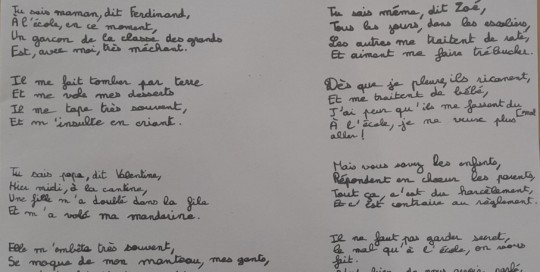 Tu sais maman, dit Ferdinand,
À l'école, en ce moment,
Un garçon de la classe des grands
Est, avec moi, très méchant.
Il me fait tomber par terre
Et me vole mes desserts
Il me tape très souvent,
Et m'insulte en criant.
Tu sais papa, dit Valentine,
Hier midi, à la cantine,
Une fille m'a doublé dans la file
Et m'a volé ma mandarine.
Elle m'embête très souvent,
Se moque de mon manteau, mes gants,
Tu sais mémé, dit Zoé,
Tous les jours, dans les escaliers,
Les autres me traitent de ratée,
Et aiment me faire trébucher.
Dès que je pleure, ils ricanent,
Et me traitent de bébé,
J'ai peur qu'ils me fassent du [mal
À l'école, je ne veux plus
aller !
Mais vous savez les enfants,
Répondent en chœur les parents,
Tout ça, c'est du harcèlement,
Et c'est contraire au règlement.
Il ne faut pas garder secret,
Le mal qu'à l'école, on vous
fait.